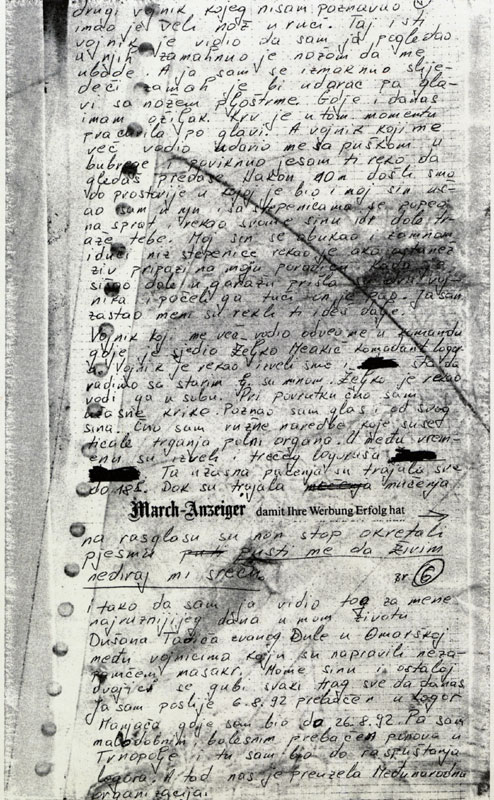 drugi vojnik kojeg nisam poznavao
imao je veli nož u ruci. Taj isti
vojnik je vidio da sam ja pogledao
u njih zamahnuo je nožom da me
ubode. A ja sam se izmaknuo slije-
deći zamah je bi udarac po gla-
vi sa nožem pljoštrme. Gdje i danas
imam ožiljak. Krv je u tom momentu
po glavi. A vojnik koji me
več vodio udario me sa puškom u
bubrege poviknuo jesam ti reko da
gledaš preda se. Nakon 10 m došli smo
do prostorije u kojoj je bio i moj sin
ao sam u nju i sa stepenicama se popeo
na sprat rekao svome sinu idi dole tr-
aže tebe. Moj sin se obukao i samnom
iduči niz stepenice rekao je ako ostanez
živ pripazi na moju porodicu. Kada
sišao dole u garažu prišla
nika i počeli ga tući on je pao. Ja sam
zastao meni su rekli ti idi dalje.
Vojnik koji me več vodio odveo me u komandu
gdje je sjedio Željko Meakić komadant logor
a vojnik je rekao izveli smo i šta da
radimo sa starim su mnom. Željko je rekao
vodi ga u sobu. Pri povratku čuo sam
užasne krike. Poznao sam glas i od svog
sina. Čuo sam ružne naredbe koje su se
ticale trganja polni organa. U među vrem-
enu su izveli i trečeg logoraša
Ta užasna mučenja su trajala sve
do 18 s. Dok su trajala mučenja
March-Anzeiger damit Ihre Werbung Erfolg hat →
na rasglasu su non stop okretali
pjesmu pusti me da živim
nediraj mi sreću
br 6
I tako da sam ja vidio tog za mene
najružnijijeg dana u mom životu
Dušana Tadića zvanog Dule u Omarskoj
među vojnicima koji su napravili neza-
pamčem masakr. Mome sinu i ostaloj
dvojici se gubi svaki trag sve do danas
Ja sam poslije 6.8.92 prebačen u Logor
Manjača gdje sam bio do 26.8.92. Pa sam
malodobnim bolesnim prebačen ponova u
Trnopolje i tu sam bio do raspuštanja
logora. A tad nas je preuzela Međunarodna
organizacija.